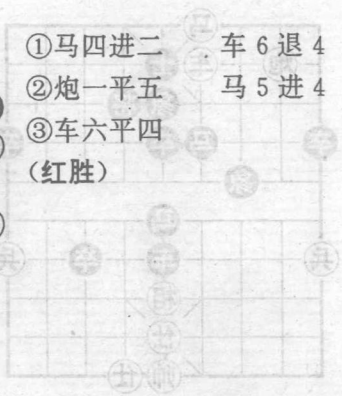 ①马四进二 车6退4
②炮一平五 马5进4
③车六平四
（红胜）